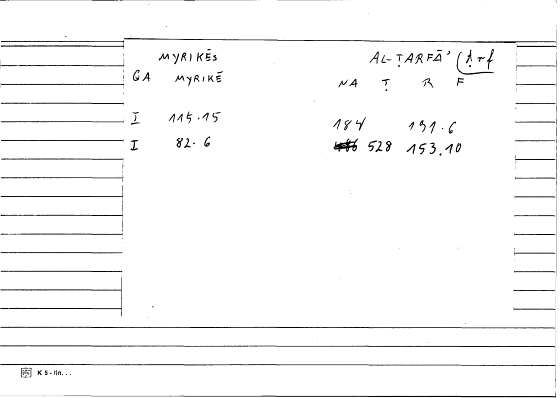 MYRIKĒS AL-ṬARFĀʾ (ṭrf
GA MYRIKĒ NA Ṭ R F
I 115.15 184 131.6
I 82.6 528 153.10
K 5-lin...